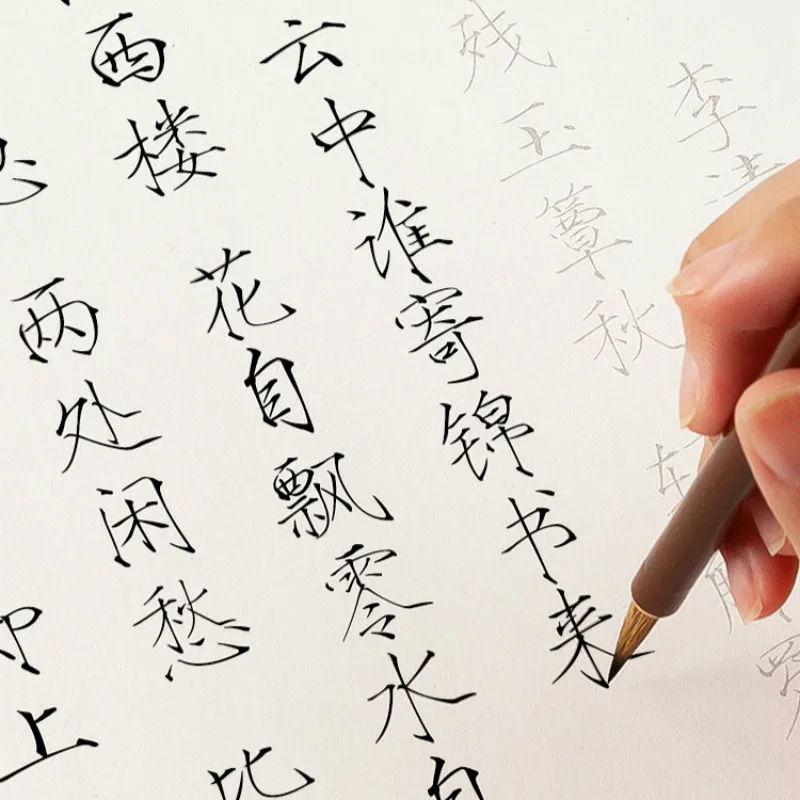 李清
残玉簟秋
云中谁寄锦书来
西楼 花自飘零水自
两处闲愁 此
上